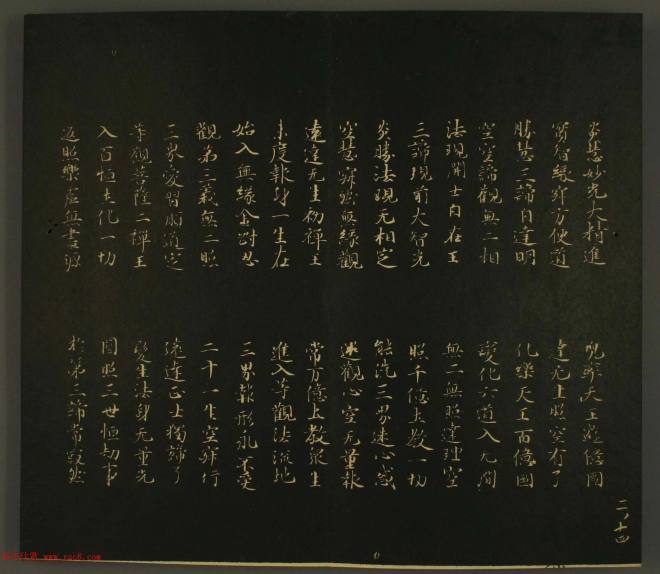 炎慧妙光大精進 兜率天王遊億國
實智緣寂方便道 達无生照空有了
勝慧三諦自達明 化樂天王百億國
空空諦觀無二相 變化六道入无間
法現開士自在王 無二無照達理空
三諦現前大智光 照千億土教一切
炎勝法現无相定 能洗三界迷心惑
空慧寂然無緣觀 還觀心空无量報
遠達无生初禪王 常万億土教眾生
未度報身一生在 進入等觀法流地
始入無緣金剛忍 三界報形永不受
觀第三義無二照 二十一生空寂行
三界愛習順道定 遠達正士獨諦了
等觀菩薩二禪王 變生法身无量光
入百恒土化一切 圓照三世恒劫事
返照樂虛無盡源 於第三諦常寂然
二ノ十四
www.yac8.com